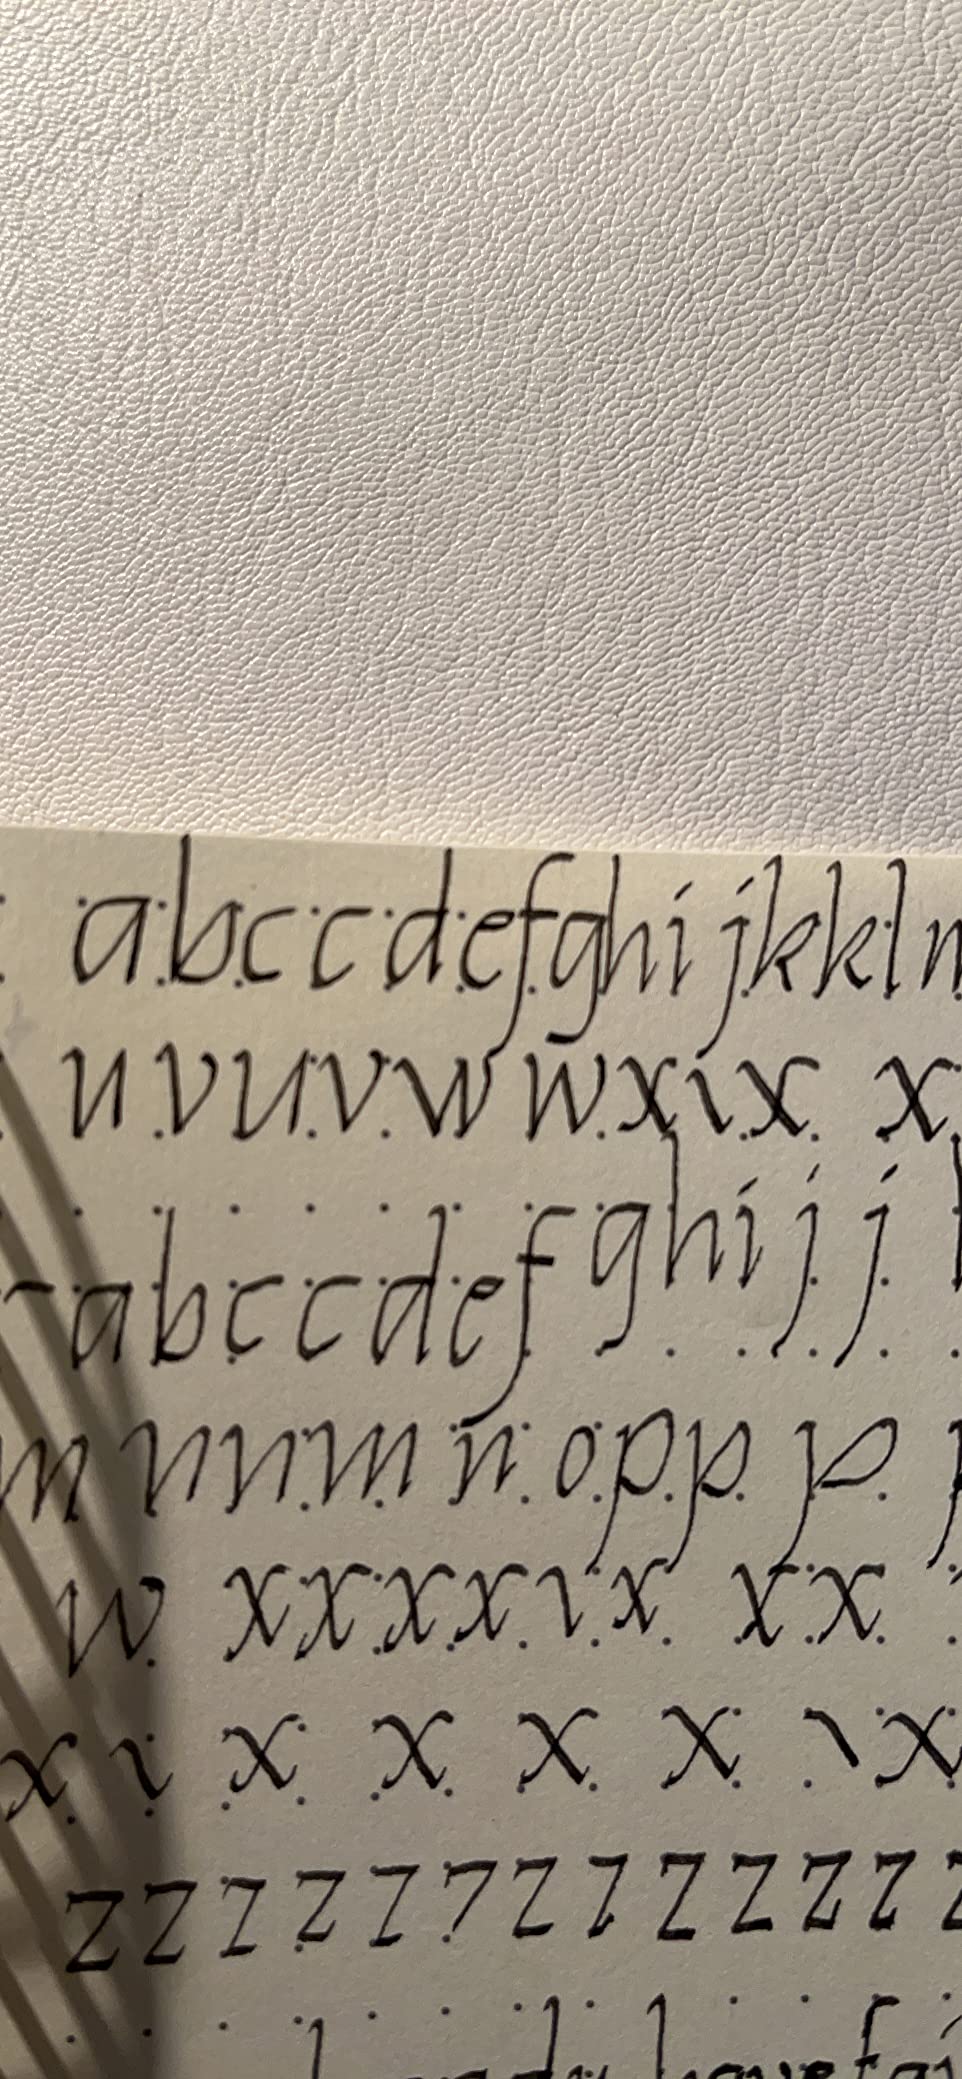 abccdefghijkkln
uvuvwwxixx
abccdefghijj
mnnmnoppp
wxxxxixxx
xixxxxx
zzzzzzzzzzzz
have